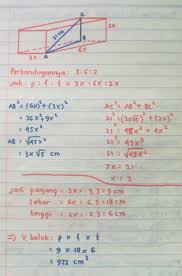 C
2x
21cm
B
3x
A
6x
Perbandingannya : 3:6:2
jadi p : l : t = 3x : 6x : 2x
AB² = (6x)² + (3x)²
= 36x² + 9x²
= 45x²
AB = √45x²
= 3x√5 cm
AC² = AB² + BC²
21² = (3x√5)² + (2x)²
21² = 45x² + 4x²
21² = 49x²
21 = √49x²
7x = 21
x = 3
jadi panjang = 3x = 3.3 = 9 cm
lebar = 6x = 6.3 = 18 cm
tinggi = 2x = 2.3 = 6 cm
=> V balok = p x l x t
= 9 x 18 x 6
= 972 cm³